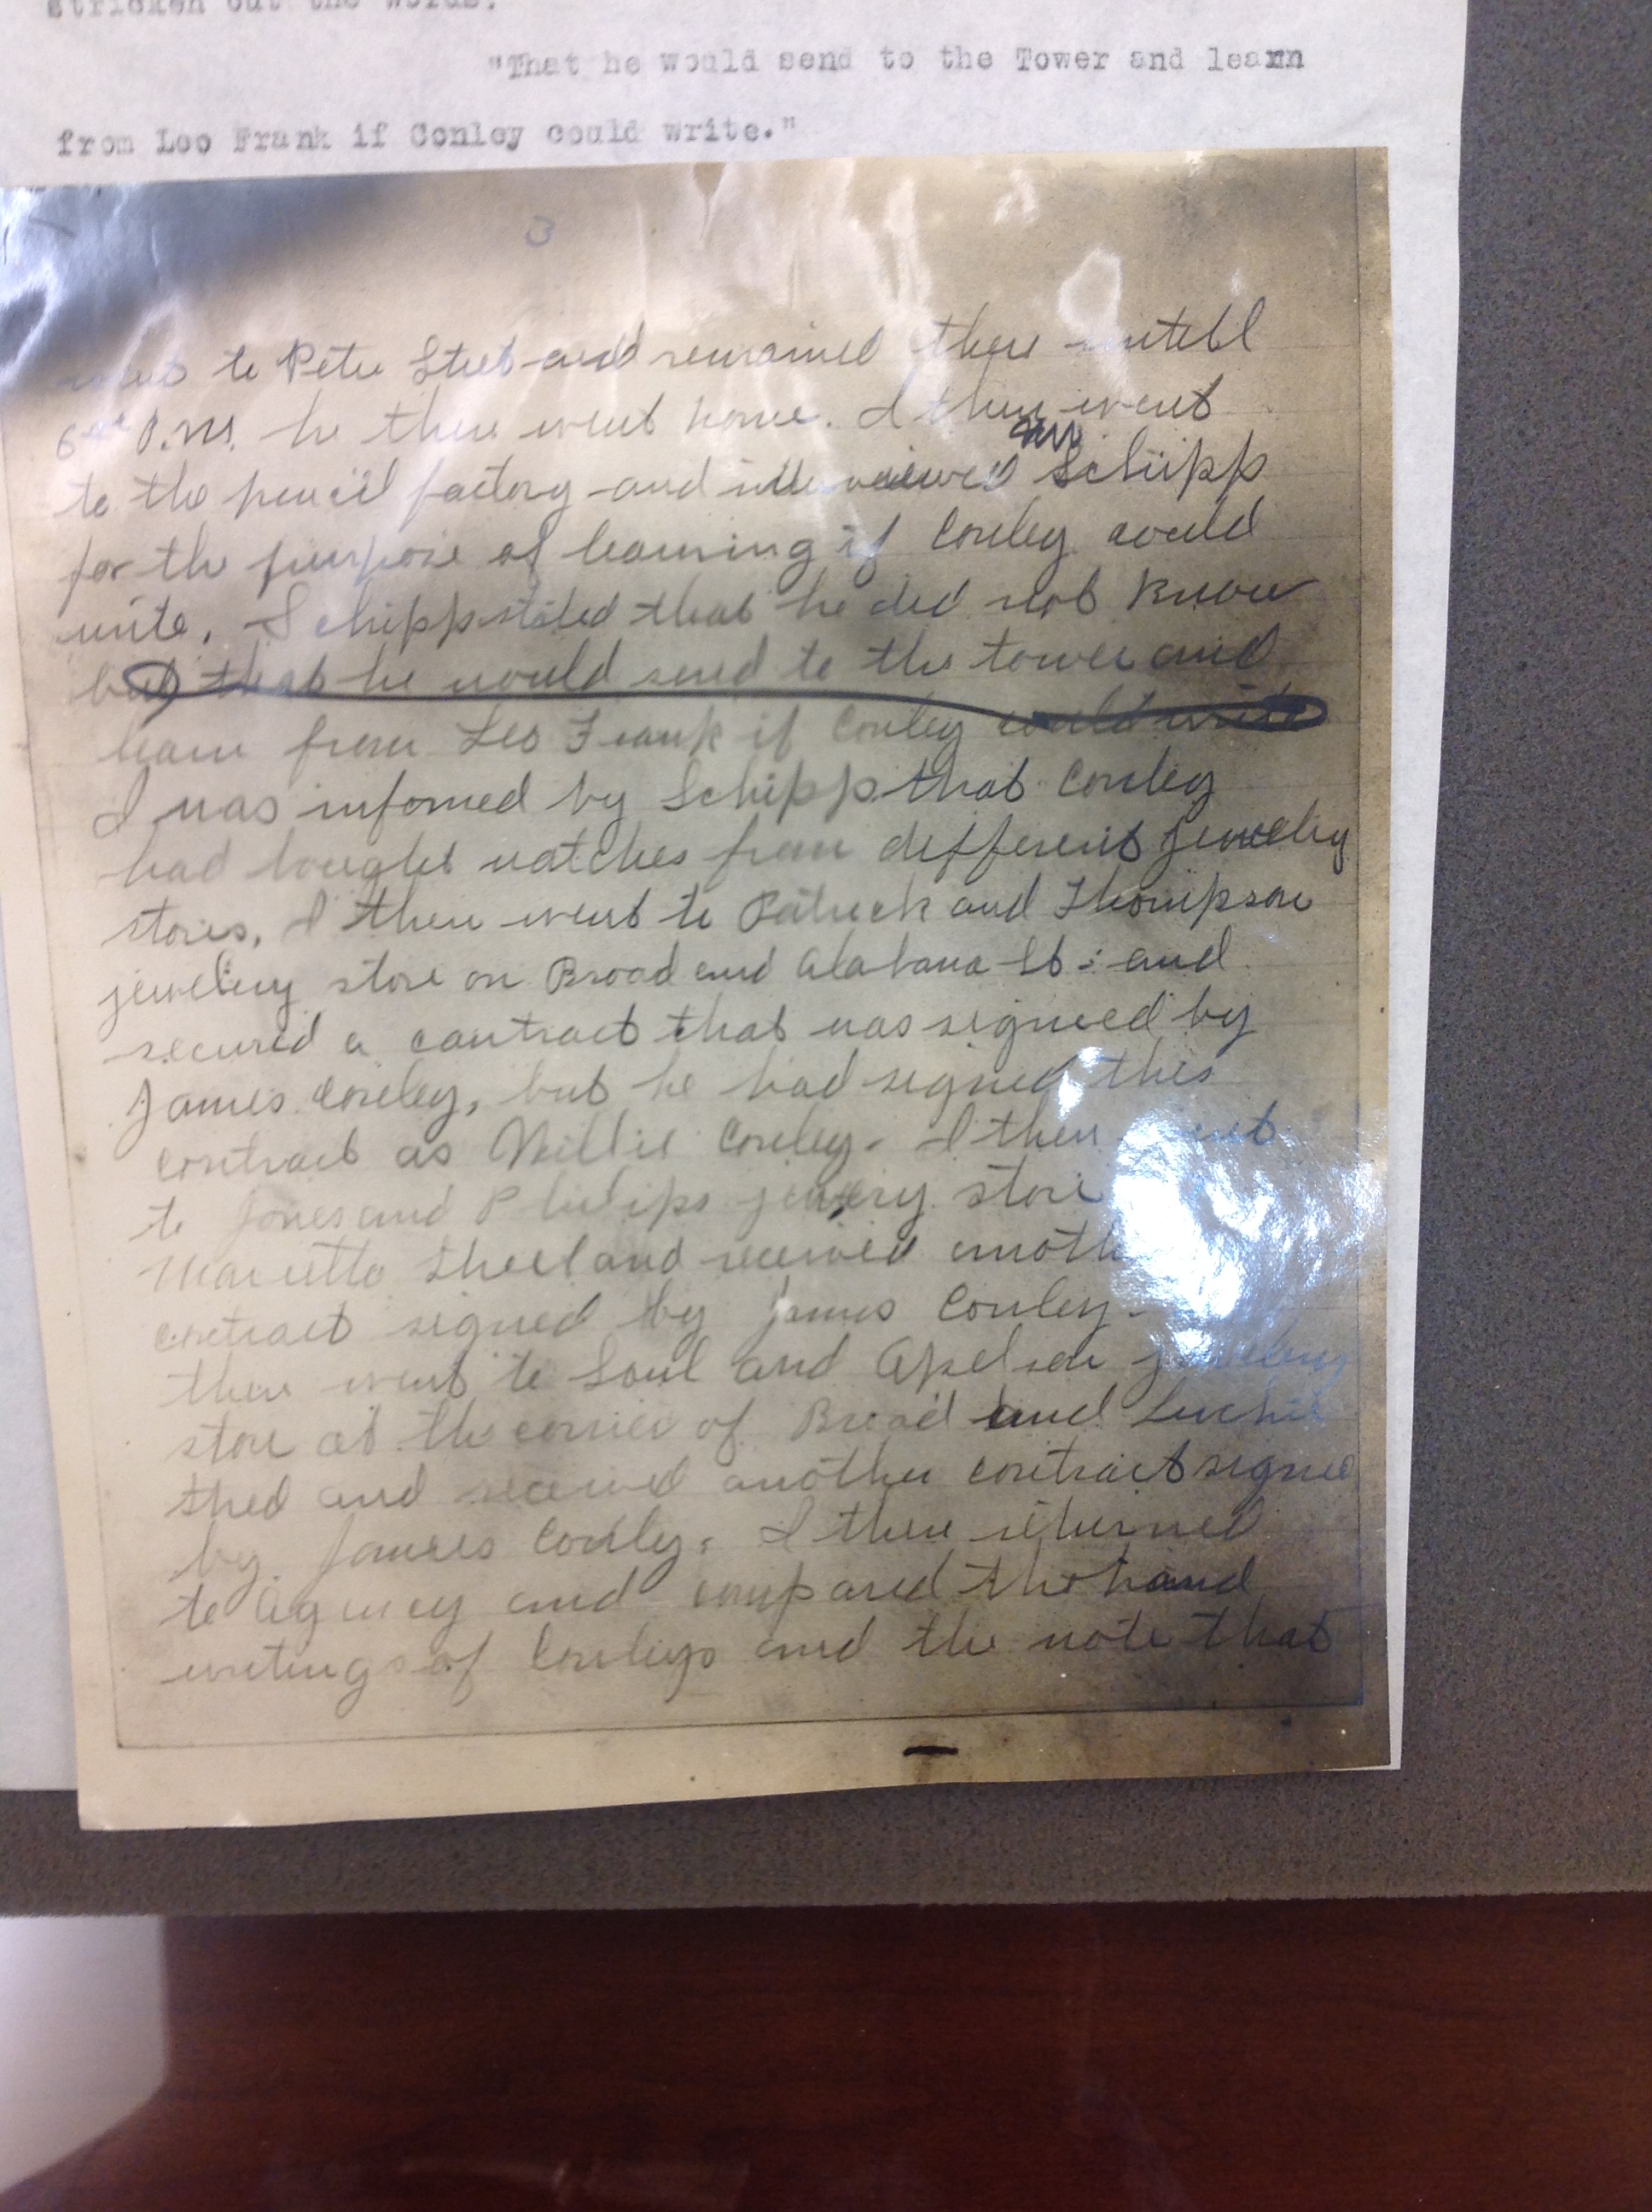 stricken out the words:
"That he would send to the Tower and learn
from Leo Frank if Conley could write."
3
went to Peter Street and remained there untill
6 P.M. he then went home. I then went
to the pencil factory and interviewed Mr Schipp
for the purpose of learning if Conley could
write. Schipp stated that he did not know
but that he would send to the tower and
learn from Leo Frank if Conley could write
I was informed by Schipp that Conley
had bought watches from different jewelry
stores, I then went to Patrick and Thompson
jewelery store on Broad and Alabama St: and
secured a contract that was signed by
James Conley, but he had signed this
contract as Willie Conley. I then went
to Jones and Philips jewery store
Marietta Street and received anoth
contract signed by James Conley.
then went to Saul and Apelson jewelery
store at the corner of Broad and
and received another contract signed
by James Conley. I then returned
to agency and compared the hand
writings of Conleys and the note that